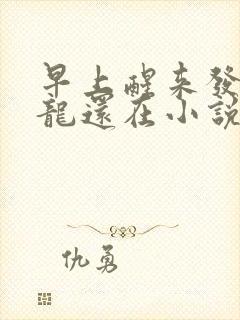 早上醒来發
龍還在小說
仇勇